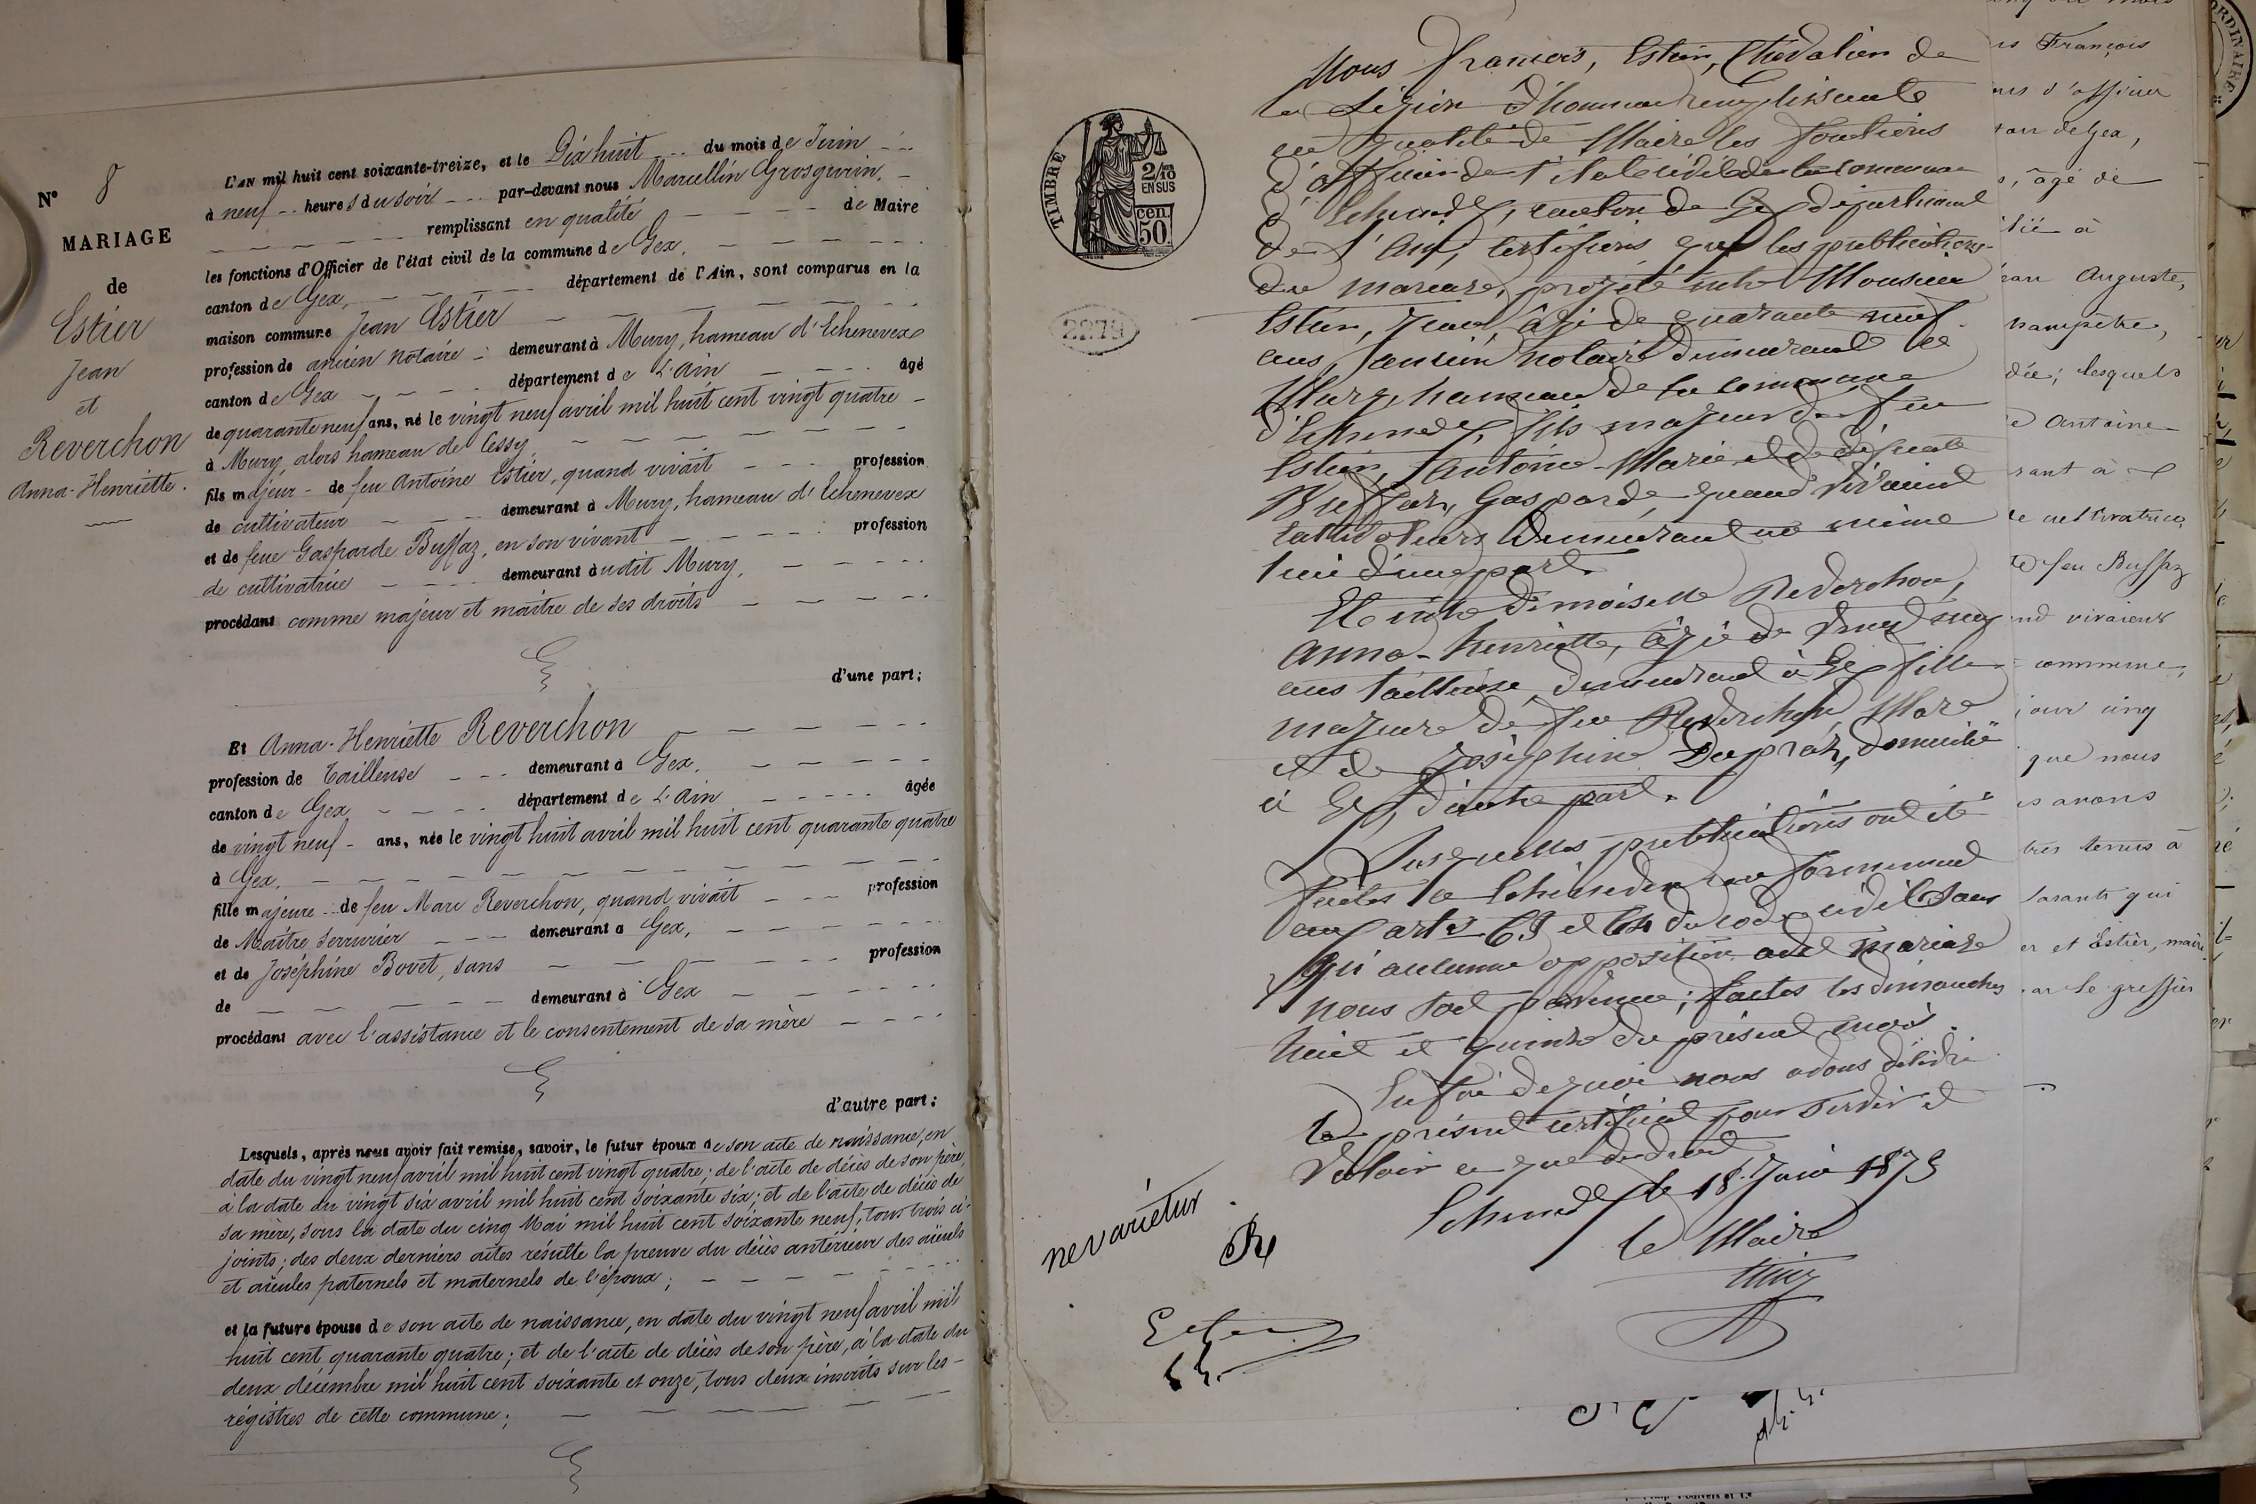 N° 8
MARIAGE
de
Estier
Jean
et
Reverchon
Anna-Henriette.
L'AN mil huit cent soixante-treize, et le Dix huit du mois de Juin
à neuf heures du soir par-devant nous Marcellin Grosgurin,
remplissant en qualité de Maire
les fonctions d'Officier de l'état civil de la commune de Gex,
canton de Gex, département de l'Ain, sont comparus en la
maison commune Jean Estier
profession de ancien notaire demeurant à Mury, hameau d'Echenevex
canton de Gex département de L'Ain âgé
de quarante neuf ans, né le vingt neuf avril mil huit cent vingt quatre
à Mury, alors hameau de Cessy,
fils majeur de feu Antoine Estier, quand vivait profession
de cultivateur demeurant à Mury, hameau d'Echenevex
et de feue Gasparde Buffaz, en son vivant profession
de cultivatrice demeurant àudit Mury,
procédant comme majeur et maître de ses droits
d'une part;
Et Anna-Henriette Reverchon
profession de Tailleuse demeurant à Gex,
canton de Gex département de L'Ain âgée
de vingt neuf ans, née le vingt huit avril mil huit cent quarante quatre
à Gex,
fille majeure de feu Marc Reverchon, quand vivait profession
de Maître serrurier demeurant à Gex,
et de Joséphine Bovet, sans profession
de demeurant à Gex
procédant avec l'assistance et le consentement de sa mère
d'autre part;
Lesquels, après nous avoir fait remise, savoir, le futur époux de son acte de naissance, en
date du vingt neuf avril mil huit cent vingt quatre; de l'acte de décès de son père,
à la date du vingt six avril mil huit cent soixante six; et de l'acte de décès de
sa mère, sous la date du cinq Mai mil huit cent soixante neuf, tous trois ci-
joints; des deux derniers actes résulte la preuve du décès antérieur des aïeuls
et aïeules paternels et maternels de l'époux;
et la future épouse de son acte de naissance, en date du vingt neuf avril mil
huit cent quarante quatre; et de l'acte de décès de son père, à la date du
deux décembre mil huit cent soixante et onze, tous deux inscrits sur les
régistres de cette commune;
TIMBRE
2/10
EN SUS
50 cen.
2279
Nous François, Estier, Chevalier de
la Légion d'honneur remplissant
en qualité de Maire les fonctions
d'officier de l'état civil de la commune
d'Echenevex, canton de Gex département
de l'Ain, certifions que les publications
du mariage, projeté entre Monsieur
Estier, Jean, âgé de quarante neuf
ans, ancien notaire demeurant à
Mury, hameau de la commune
d'Echenevex, fils majeur de feu
Estier, Antoine-Marie et de défunte
Buffaz, Gasparde, quand vivaient
cultivateurs demeurant au même
lieu d'une part.
Et entre demoiselle Reverchon,
Anna-henriette, âgée de vingt neuf
ans tailleuse, demeurant à Gex fille
majeure de feu Reverchon, Marc
et de Joséphine Dupraz, domiciliée
à Gex, d'autre part.
Lesquelles publications ont été
faites à Echenevex conformément
aux arts 63 et 64 du code civil sans
qu'aucune opposition audit mariage
nous soit parvenue; faites les dimanches
huit et quinze du présent mois.
En foi de quoi nous avons délivré
le présent certificat pour servir et
valoir ce que de droit
Echenevex le 18 Juin 1873
le Maire
ne varietur
François
d'officier
de Gex,
âgé de
à
Auguste,
lesquels
Antoine
cultivatrice,
feu Buffaz
vivaient
commune,
jour cinq
que nous
avons
tenus à
qui
et Estier, maire
le greffier